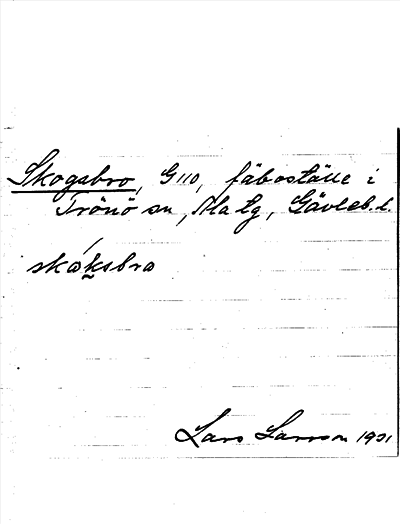 Skogsbro, G 110, fäboställe i
Trönö sn, Ala tg, Gävleb. l.
skóksbro
Lars Larsson 1931